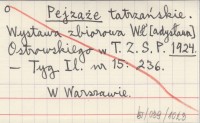 Pejzaże tatrzańskie.
Wystawa zbiorowa Wł[adysława]
Ostrowskiego w T. Z. S. P. 1924.
— Tyg Il. nr 15. 236.
W Warszawie.